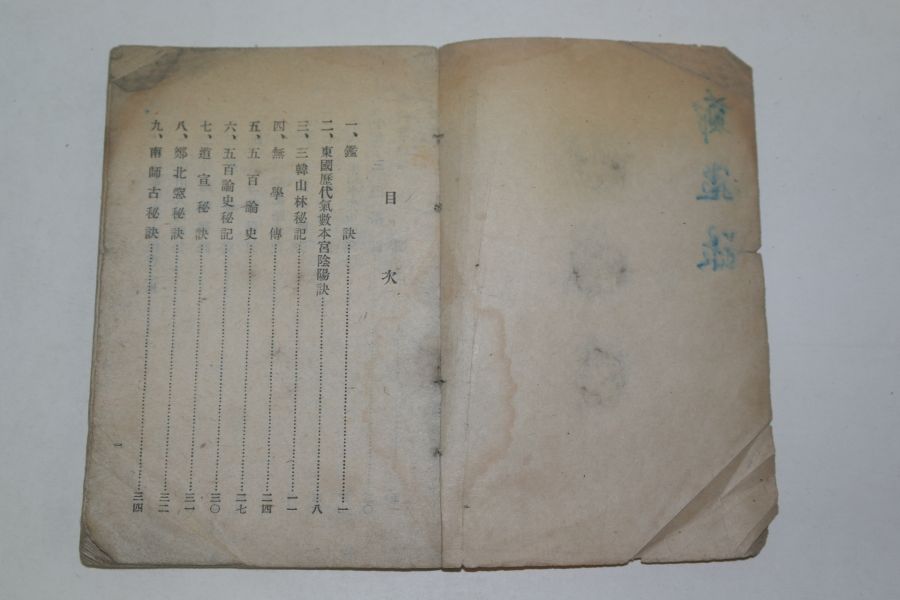 鄭鑑錄
目次
一、鑑訣……一
二、東國歷代氣數本宮陰陽訣……八
三、三韓山林秘記……一一
四、無學傳……二四
五、五百論史……二七
六、五百論史秘記……三〇
七、道宣秘訣……三一
八、鄭北窓秘訣……三二
九、南師古秘訣……三四
一